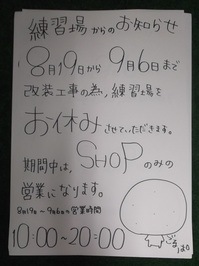 練習場からのお知らせ
8月19日から9月6日まで
改装工事の為、練習場を
お休みさせていただきます。
期間中は、SHOPのみの
営業になります。
8月19日〜9月6日の営業時間
10:00〜20:00